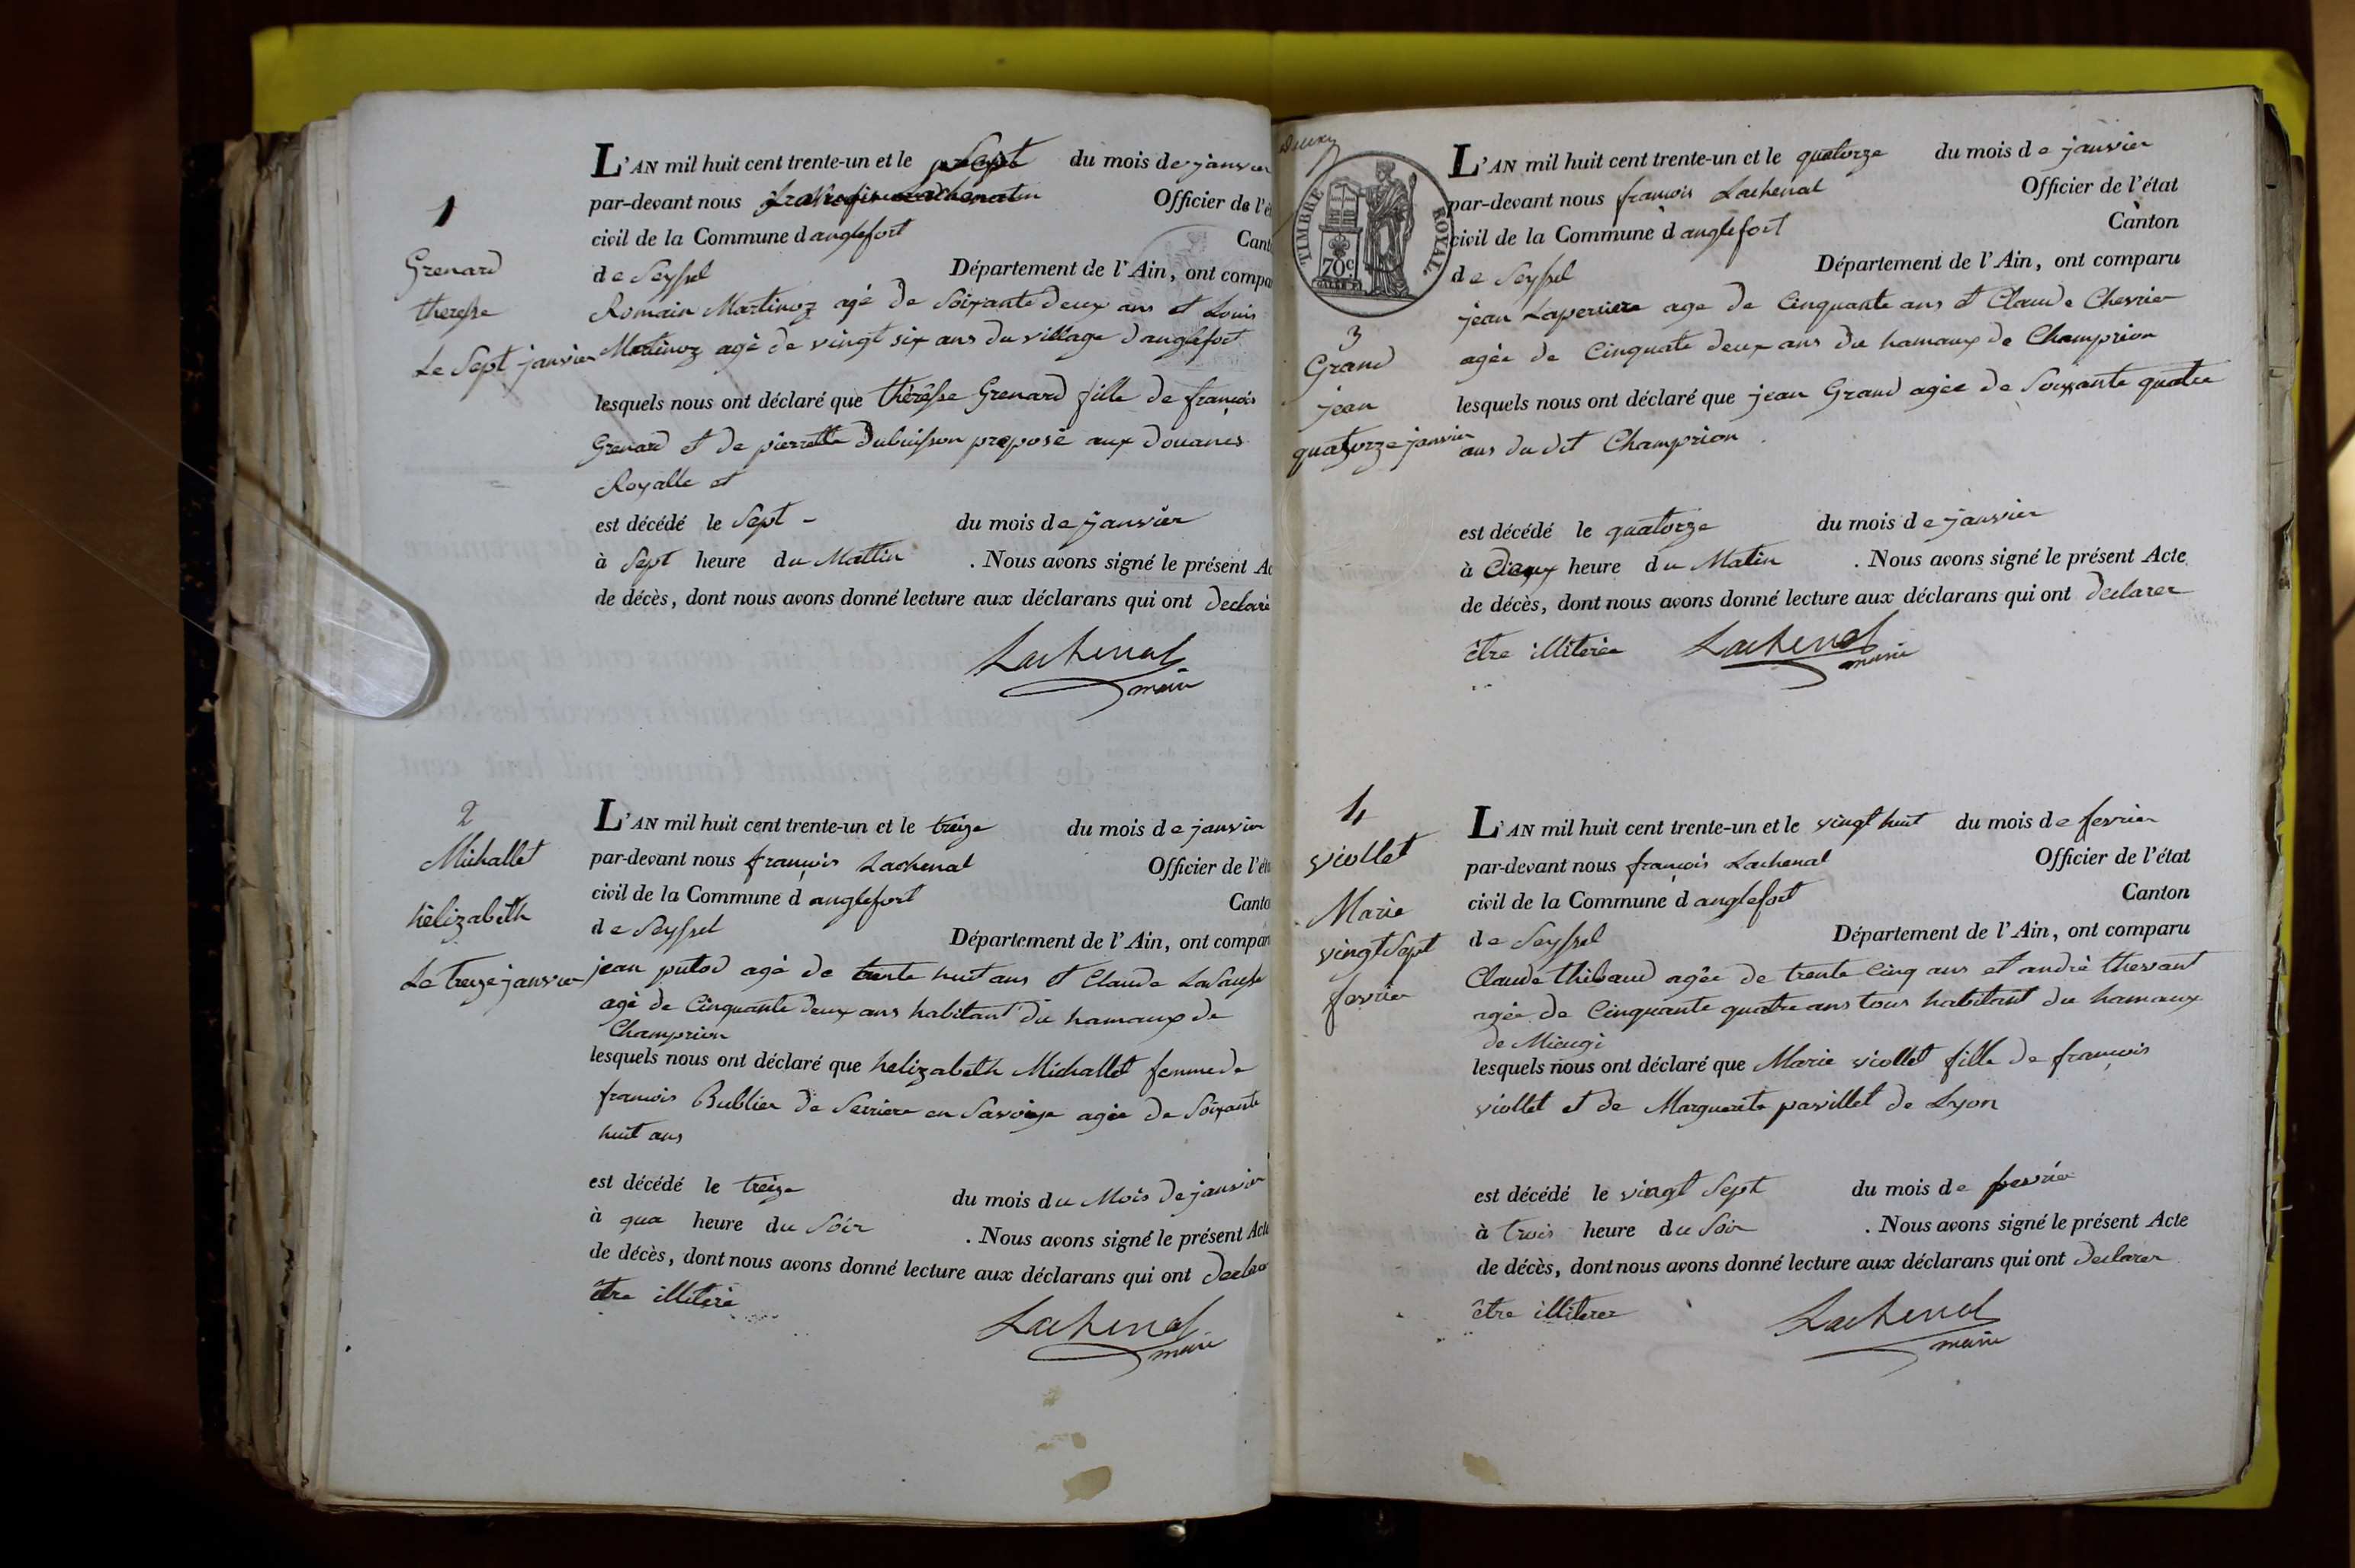 1
Grenard
theresse
Le Sept janvier
L'AN mil huit cent trente-un et le Sept du mois de janvier
par-devant nous Officier de l'é
civil de la Commune d anglefort
Cant
de Seyssel Département de l'Ain, ont compa
Romain Martinoz agé de Soixante deux ans et Louis
Martinoz agé de vingt six ans du village d anglefort
lesquels nous ont déclaré que thérèsse Grenard fille de françois
Grenard et de pierrette Dubuisson proposé aux Douanes
Royalle et
est décédé le Sept - du mois de janvier
à Sept heure du Mattin . Nous avons signé le présent Ac
de décès, dont nous avons donné lecture aux déclarans qui ont declaré
Lachenal
maire
2
Michallet
hélizabeth
Le treize janvier
L'AN mil huit cent trente-un et le treize du mois de janvier
par-devant nous françois Lachenal Officier de l'éta
civil de la Commune d anglefort
Canto
de Seyssel Département de l'Ain, ont compar
jean putod agé de trente huit ans et Claude
agé de Cinquante Deux ans habitant du hamaux de
Champrion
lesquels nous ont déclaré que helizabeth Michallet femme de
francois Bublier de Serriere en Savoixe agée de Soixante
huit ans
est décédé le treize du mois du Mois de janvier
à qua heure du Soir . Nous avons signé le présent Acte
de décès, dont nous avons donné lecture aux déclarans qui ont declarer
être illiteré
Lachenal
maire
TIMBRE ROYAL
70c
3
Grand
jean
quatorze janvier
L'AN mil huit cent trente-un et le quatorze du mois de janvier
par-devant nous francois Lachenal Officier de l'état
civil de la Commune d anglefort
Canton
de Seyssel Département de l'Ain, ont comparu
jean Laperriere age de Cinquante ans et Claude Chevrier
agée de Cinquate deux ans du hamaux de Champrion
lesquels nous ont déclaré que jean Grand agée de Soixante quatre
ans du dit Champrion
est décédé le quatorze du mois de janvier
à heure du Matin . Nous avons signé le présent Acte
de décès, dont nous avons donné lecture aux déclarans qui ont declarer
être illiterée
Lachenal
maire
4
viollet
Marie
vingt Sept
fevrier
L'AN mil huit cent trente-un et le vingt huit du mois de fevrier
par-devant nous françois Lachenal Officier de l'état
civil de la Commune d anglefort
Canton
de Seyssel Département de l'Ain, ont comparu
Claude thibaud agée de trente Cinq ans et andré thevant
agée de Cinquante quatre ans tous habitant du hamaux
de Mieugi
lesquels nous ont déclaré que Marie viollet fille de françois
viollet et de Marguerite pavillet de Lyon
est décédé le vingt Sept du mois de fevrier
à trois heure du Soir . Nous avons signé le présent Acte
de décès, dont nous avons donné lecture aux déclarans qui ont declarer
être illiterer
Lachenal
maire